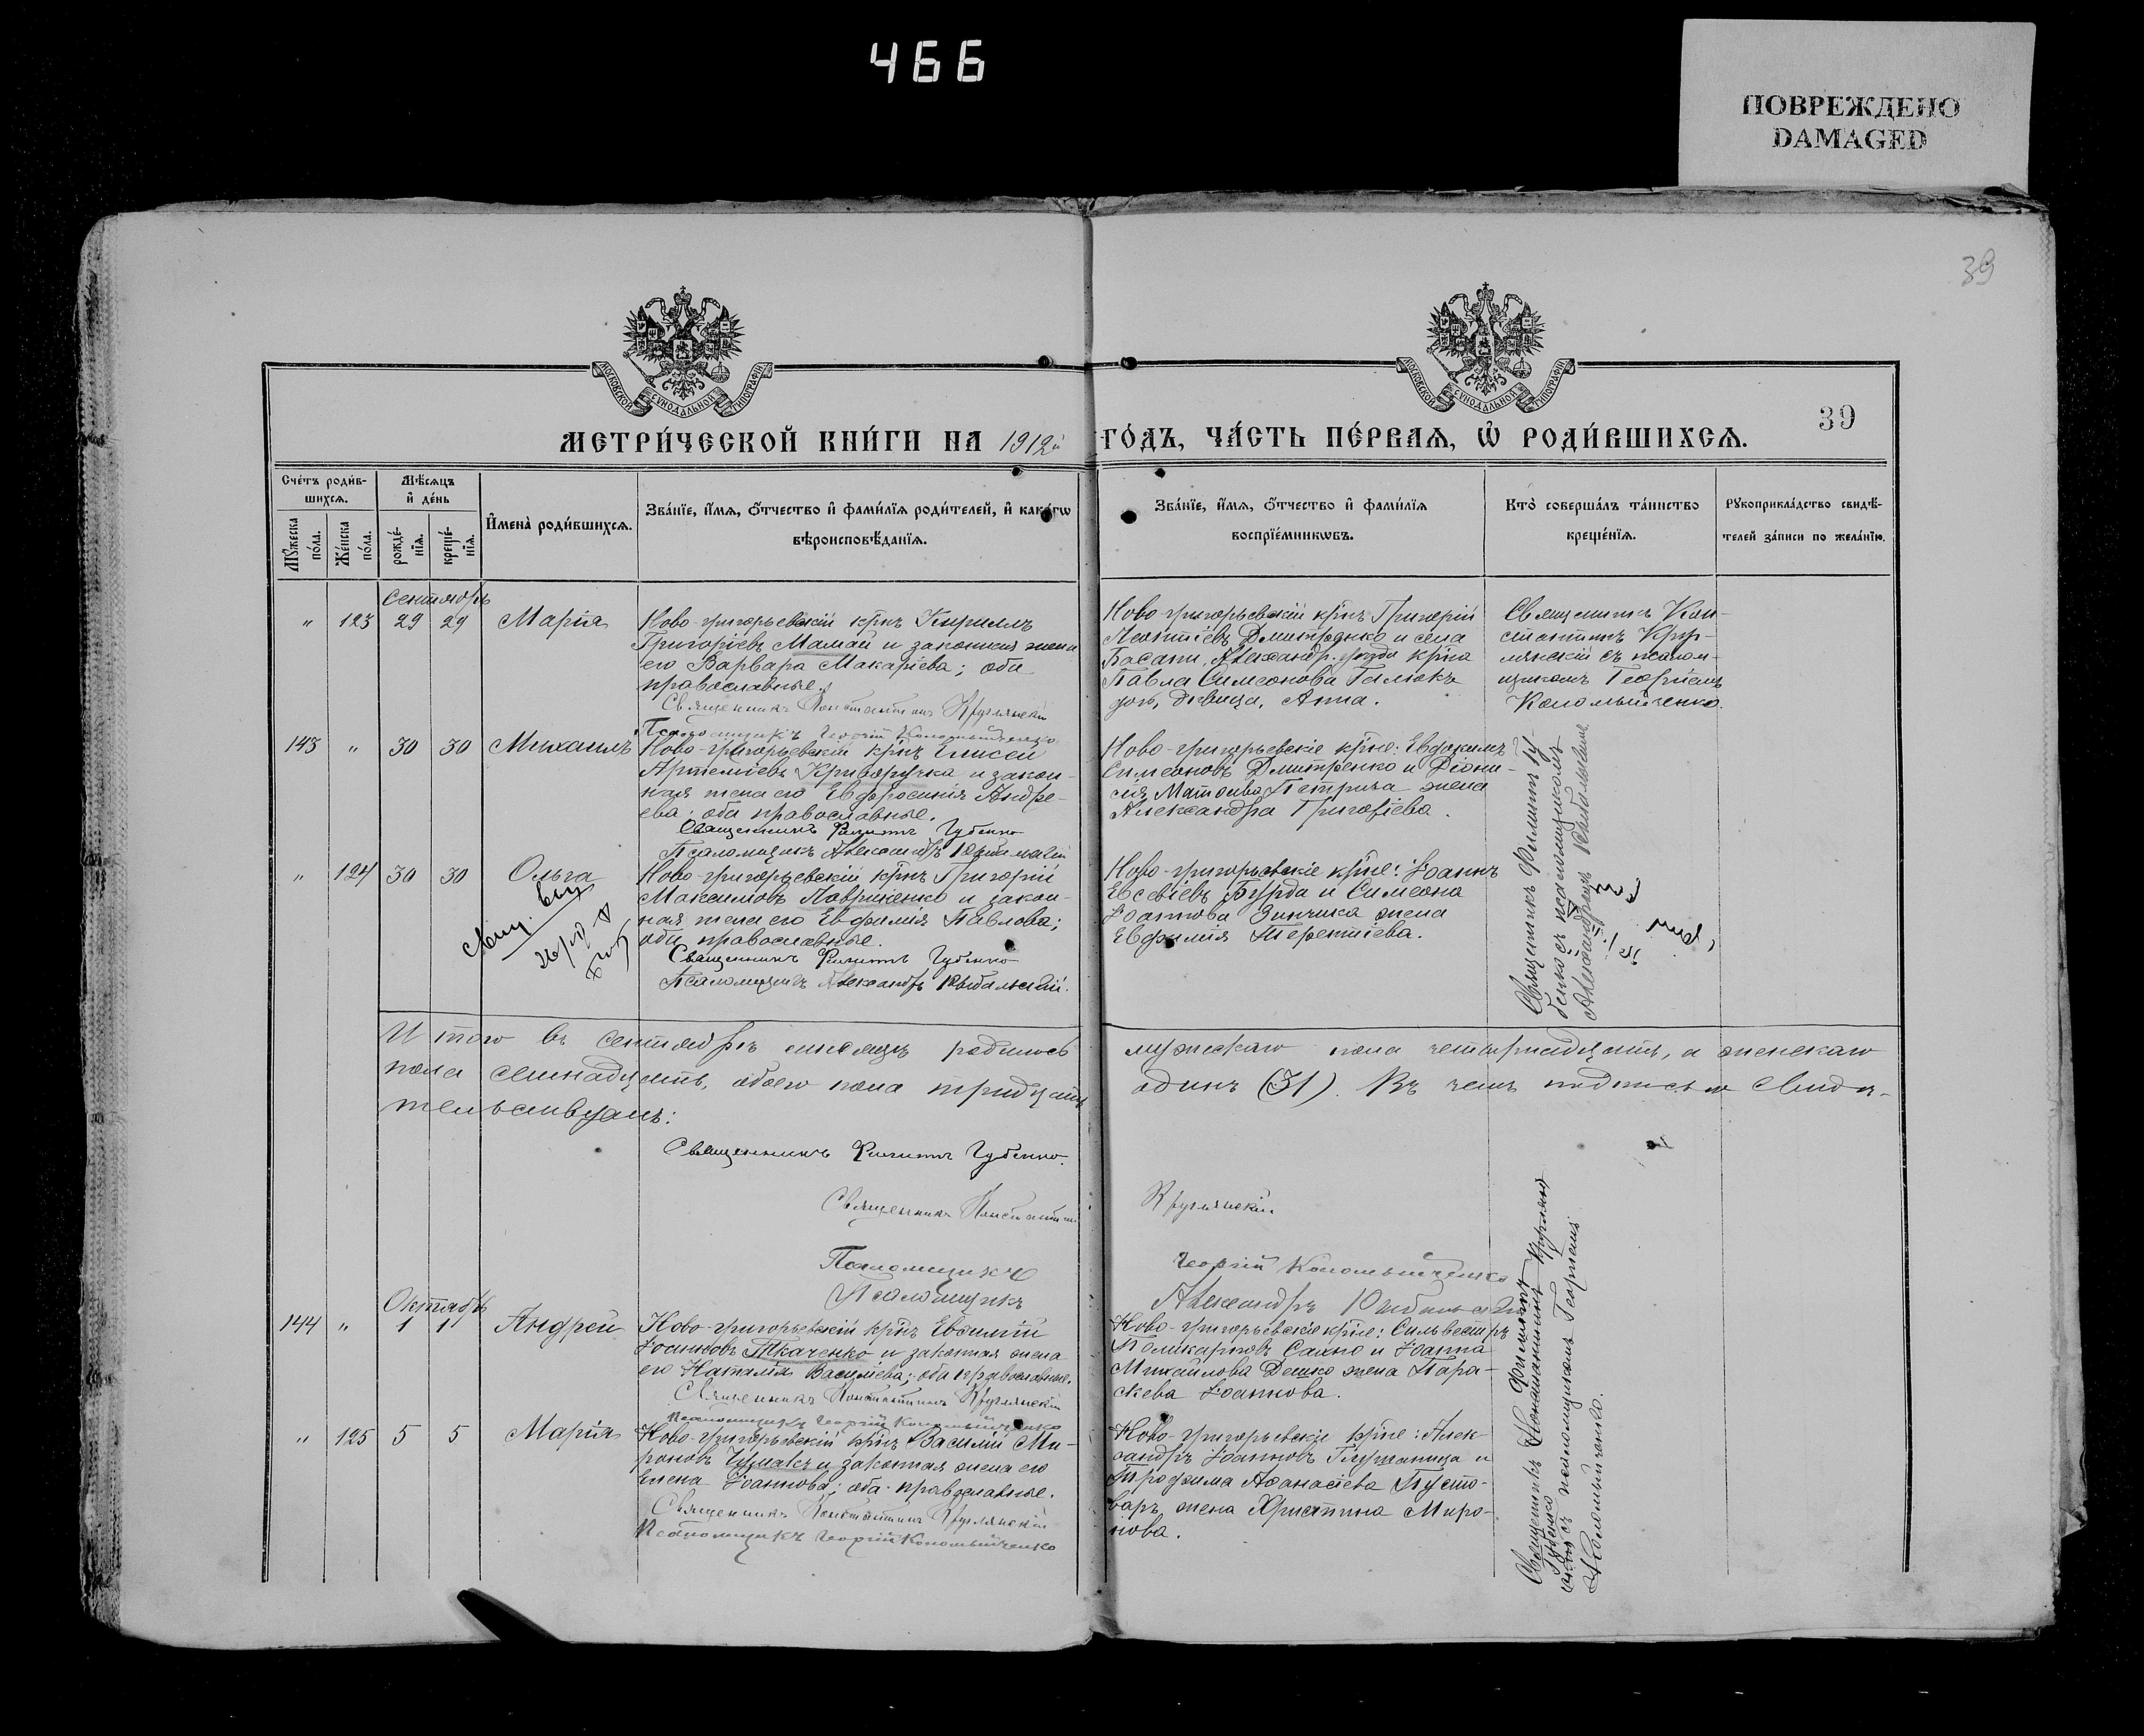 466
ПОВРЕЖДЕНО
DAMAGED
39
МОСКОВСКОЙ СУНОДАЛЬНОЙ ТИПОГРАФІИ
МОСКОВСКОЙ СУНОДАЛЬНОЙ ТИПОГРАФІИ
МЕТРИ́ЧЕСКОЙ КНИ́ГИ НА 1912й ГО́ДЪ, ЧА́СТЬ ПЕ́РВАЯ, Ѽ РОДИ́ВШИХСЯ.
39
Сче́тъ роди́в-
шихсѧ.
Мꙋ́жеска по́ла.
Же́нска по́ла.
Мѣ́сѧцъ
и҆ де́нь
рожде́-
нїѧ.
креще́-
нїѧ.
И҆мена̀ роди́вшихсѧ.
Зва́нїе, и҆́мѧ, ѻ҆́тчество и҆ фами́лїѧ роди́телей, и҆ како́гѡ
вѣроисповѣ́данїѧ.
Зва́нїе, и҆́мѧ, ѻ҆́тчество и҆ фами́лїѧ
воспрїе́мникѡвъ.
Кто̀ соверша́лъ та́инство
креще́нїѧ.
Рꙋкоприкла́дство свидѣ́-
телей за́писи по жела́нїю.
Сентябрь
" 123 29 29 Марія
Ново-григорьевскій крнъ Кириллъ
Григоріевъ Мамай и законная жена
его Варвара Макаріева; оба
православные.
Священникъ Константинъ Круглянскій
Псаломщикъ Георгій Коломыйченко
Ново-григорьевскій крнъ Григорій
Леонтіевъ Дмитренко и села
Басани, Александр. уѣзда крна
Павла Симеонова Галюкъ
дочь, дѣвица, Анна.
Священникъ Кон-
стантинъ Круг-
лянскій съ псалом-
щикомъ Георгіемъ
Коломыйченко.
143 " 30 30 Михаилъ
Ново-григорьевскій крнъ Елисей
Артеміевъ Криворучка и закон-
ная жена его Евфросинія Андре-
ева; оба православные.
Священникъ Филиппъ Губенко
Псаломщикъ Александръ
Ново-григорьевскіе крне: Евдокимъ
Симеоновъ Дмитренко и Діони-
сія Матѳіева Петрича жена
Александра Григоріева.
Священникъ Филиппъ Гу-
бенко съ псаломщикомъ
Александромъ
" 124 30 30 Ольга
Ново-григорьевскій крнъ Григорій
Максимовъ Лавриненко и закон-
ная жена его Евфимія Павлова;
оба православные.
Священникъ Филиппъ Губенко
Псаломщикъ Александръ
Ново-григорьевскіе крне: Іоаннъ
Евсевіевъ Бурда и Симеона
Іоаннова Зинчика жена
Евфимія Терентіева.
Итого въ сентябрѣ мѣсяцѣ родилось мужескаго пола четырнадцать, а женскаго
пола семнадцать, обоего пола тридцать одинъ (31). Въ чемъ подписью свидѣ-
тельствуемъ:
Священникъ Филиппъ Губенко.
Священникъ Константинъ Круглянскій
Псаломщикъ Георгій Коломыйченко
Псаломщикъ Александръ
Октябрь
144 " 1 1 Андрей
Ново-григорьевскій крнъ Евѳимій
Іоанновъ Ткаченко и законная жена
его Наталія Василіева; оба православные.
Священникъ Константинъ Круглянскій
Псаломщикъ Георгій Коломыйченко
Ново-григорьевскіе крне: Сильвестръ
Поликарповъ Сахно и Іоанна
Михайлова Дешко жена Пара-
скева Іоаннова.
Священникъ Филиппъ
Губенко
Константинъ Круглян-
скій съ псаломщикомъ Георгіемъ
Коломыйченко.
" 125 5 5 Марія
Ново-григорьевскій крнъ Василій Ми-
роновъ Чумакъ и законная жена его
Елена Іоаннова; оба православные.
Священникъ Константинъ Круглянскій
Псаломщикъ Георгій Коломыйченко
Ново-григорьевскіе крне: Алек-
сандръ Іоанновъ Глущаница и
Трофима Аѳанасіева Пусто-
варъ жена Христина Миро-
нова.